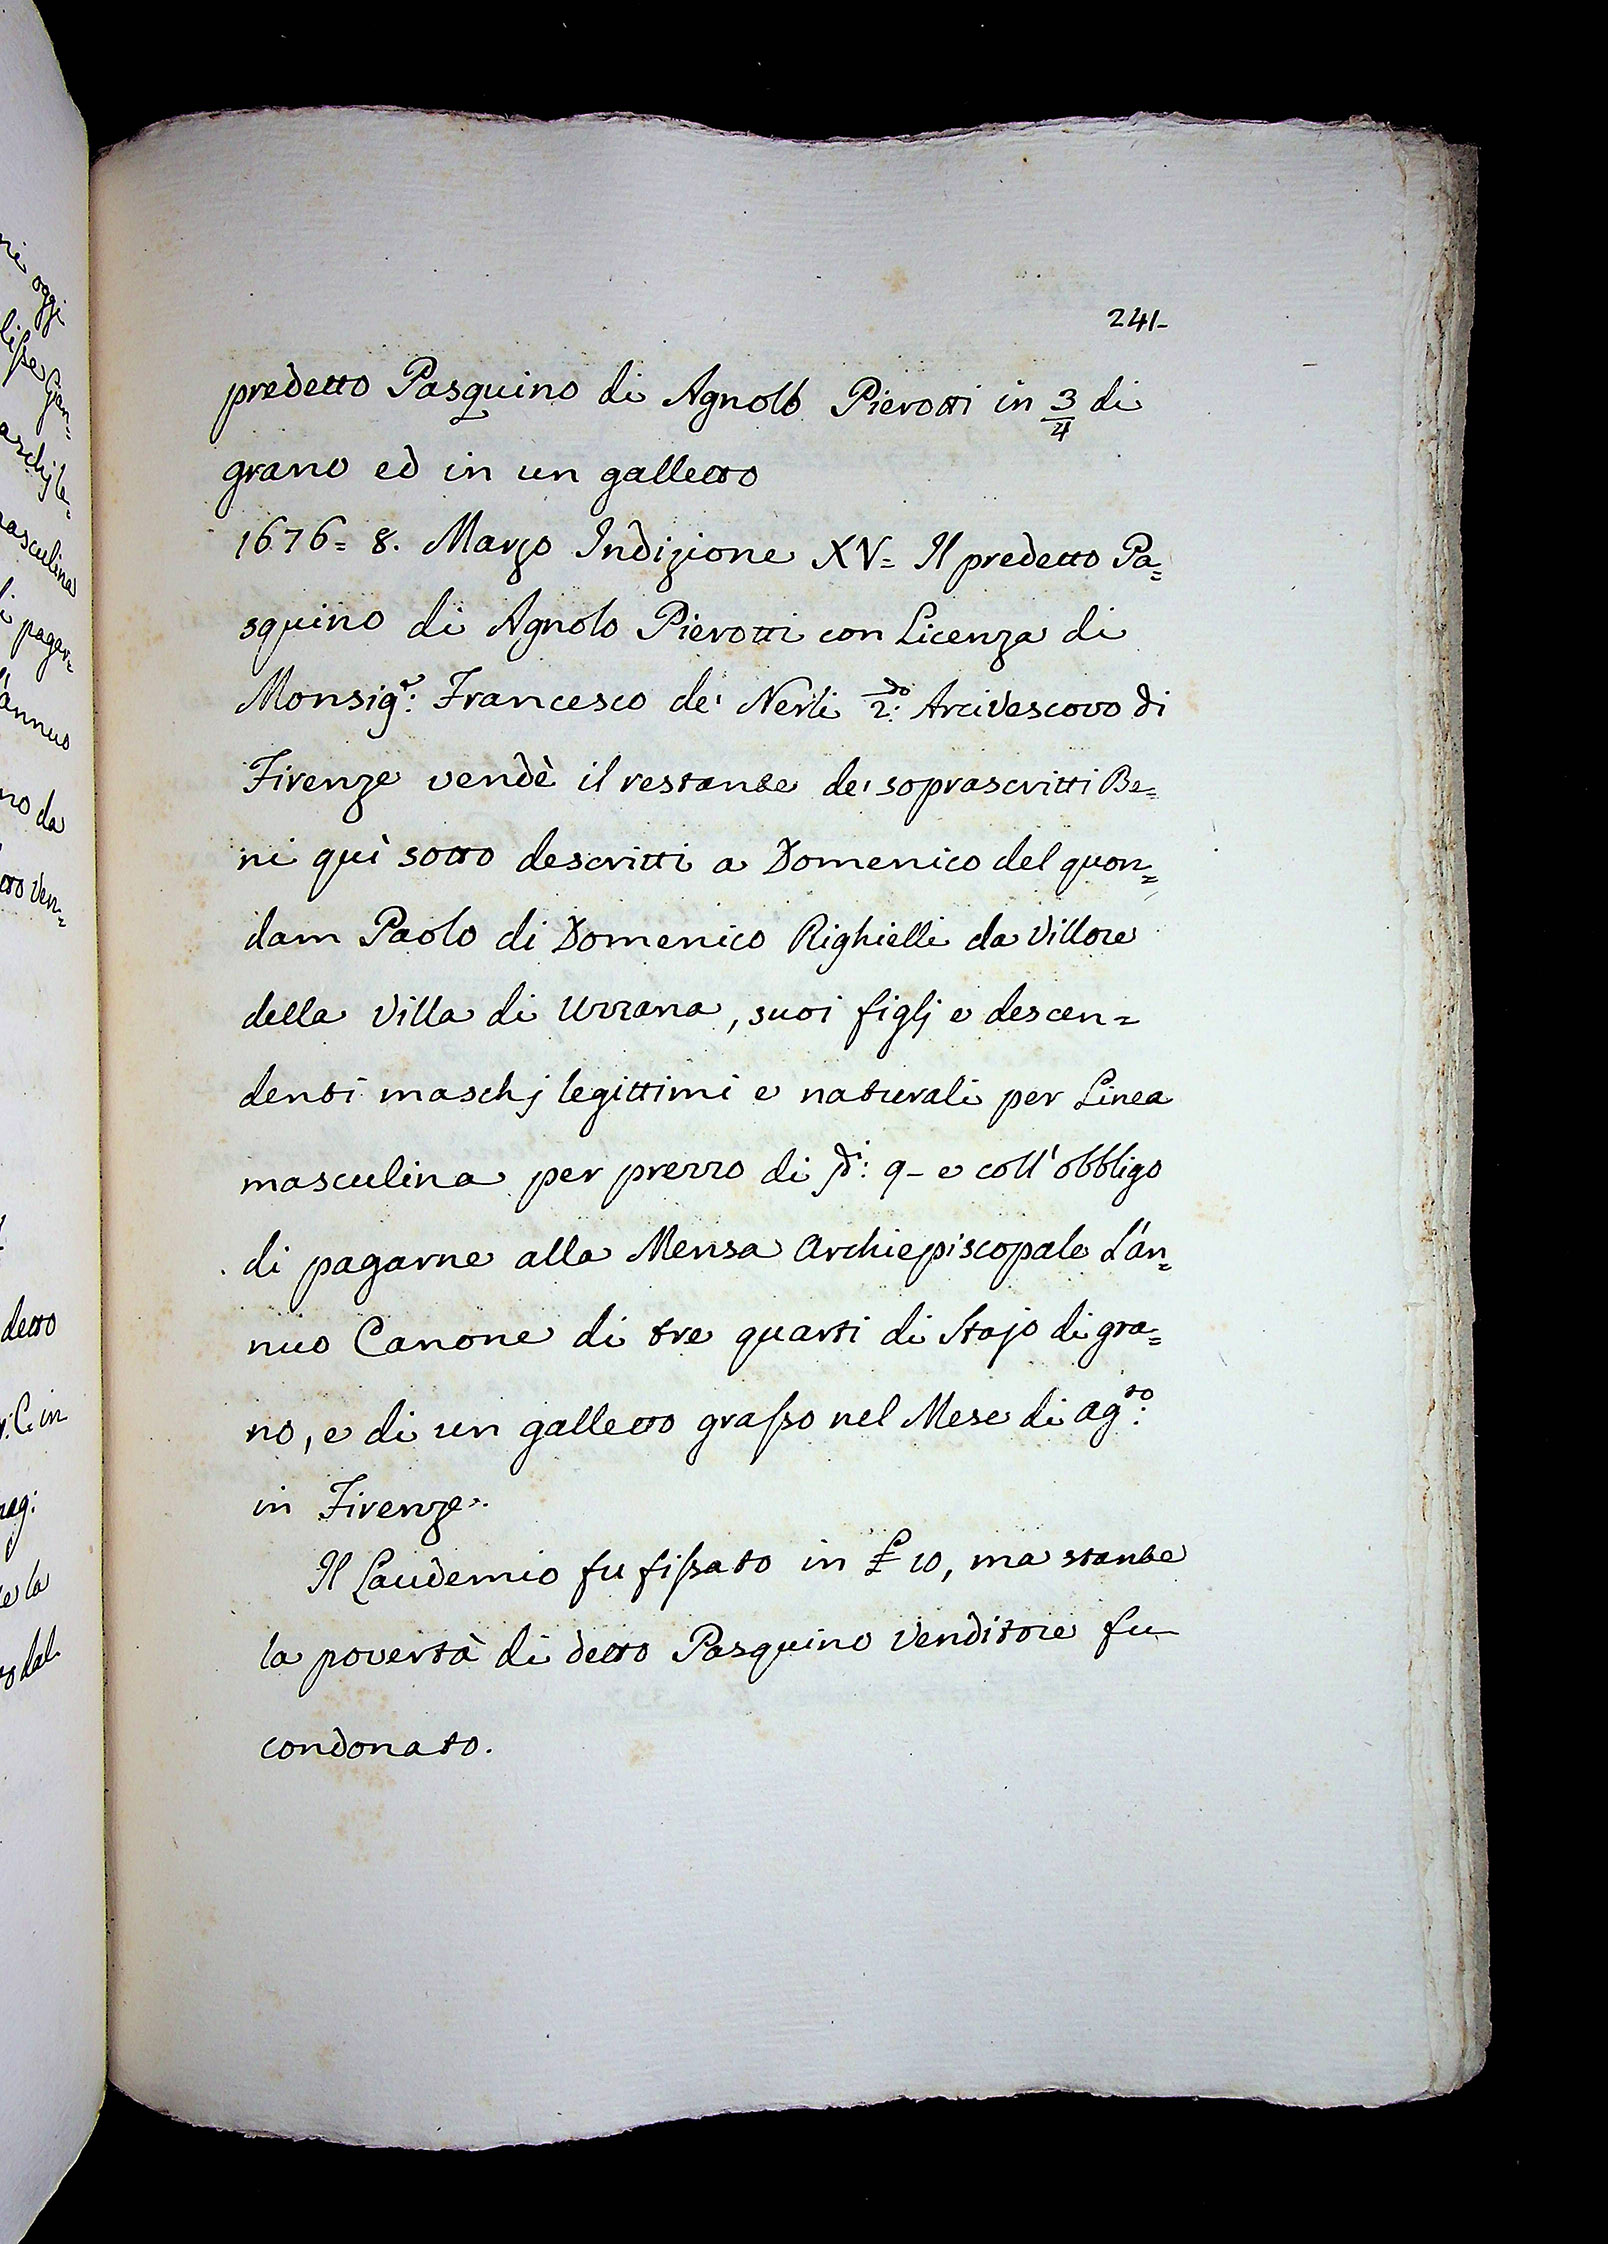 241-
predetto Pasquino di Agnolo Pierotti in 3/4 di
grano ed in un galletto
1676= 8. Marzo Indizione XV= Il predetto Pa=
squino di Agnolo Pierotti con Licenza di
Monsigr: Francesco de' Nerli 2do: Arcivescovo di
Firenze vendè il restante de' soprascritti Be=
ni quì sotto descritti a Domenico del quon=
dam Paolo di Domenico Righielli da Villore
della Villa di Uzzana, suoi figlj e descen=
denti maschj legittimi e naturali per Linea
masculina per prezzo di 9- e coll'obbligo
di pagarne alla Mensa Archiepiscopale L'an=
nuo Canone di tre quarti di Stajo di gra=
no, e di un galletto grasso nel Mese di Agto:
in Firenze.
Il Laudemio fu fissato in £ 10, ma stante
la povertà di detto Pasquino Venditore fu
condonato.
ni oggi
pagar=
l'annuo
no da
detto